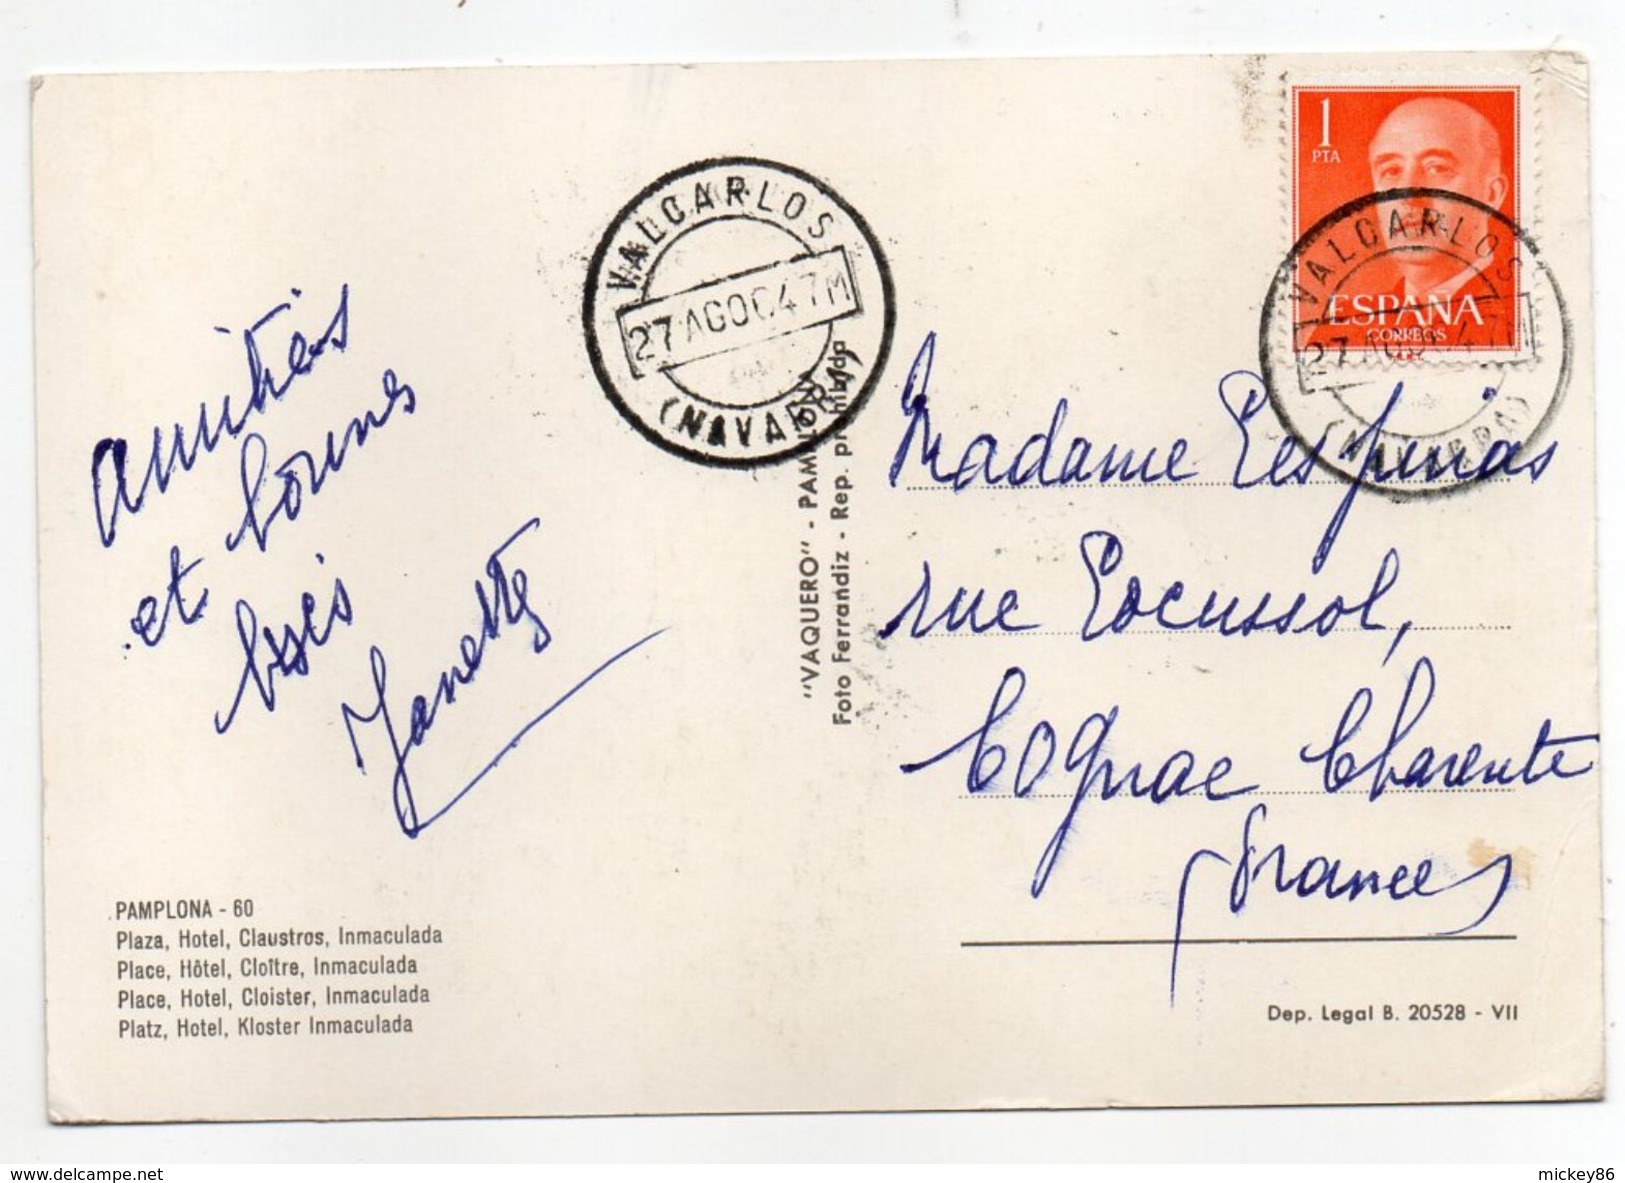 amitiés
et bonnes
bises
Janette
PAMPLONA - 60
Plaza, Hotel, Claustros, Inmaculada
Place, Hôtel, Cloître, Inmaculada
Place, Hotel, Cloister, Inmaculada
Platz, Hotel, Kloster Inmaculada
VALCARLOS
27 AGO 64 7M
(NAVARRA)
"VAQUERO" - PAMPLONA
Foto Ferrandiz - Rep. prohibida
1
PTA
ESPAÑA
CORREOS
VALCARLOS
27 AGO 64 7M
(NAVARRA)
Madame Lespinas
rue Locussol,
Cognac Charente
France
Dep. Legal B. 20528 - VII
delcampe.net
mickey86